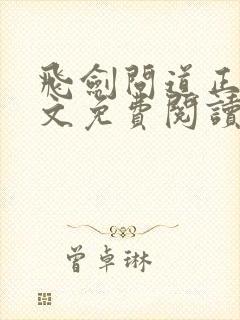 飛劍問道正
文免費閱讀
曾卓琳